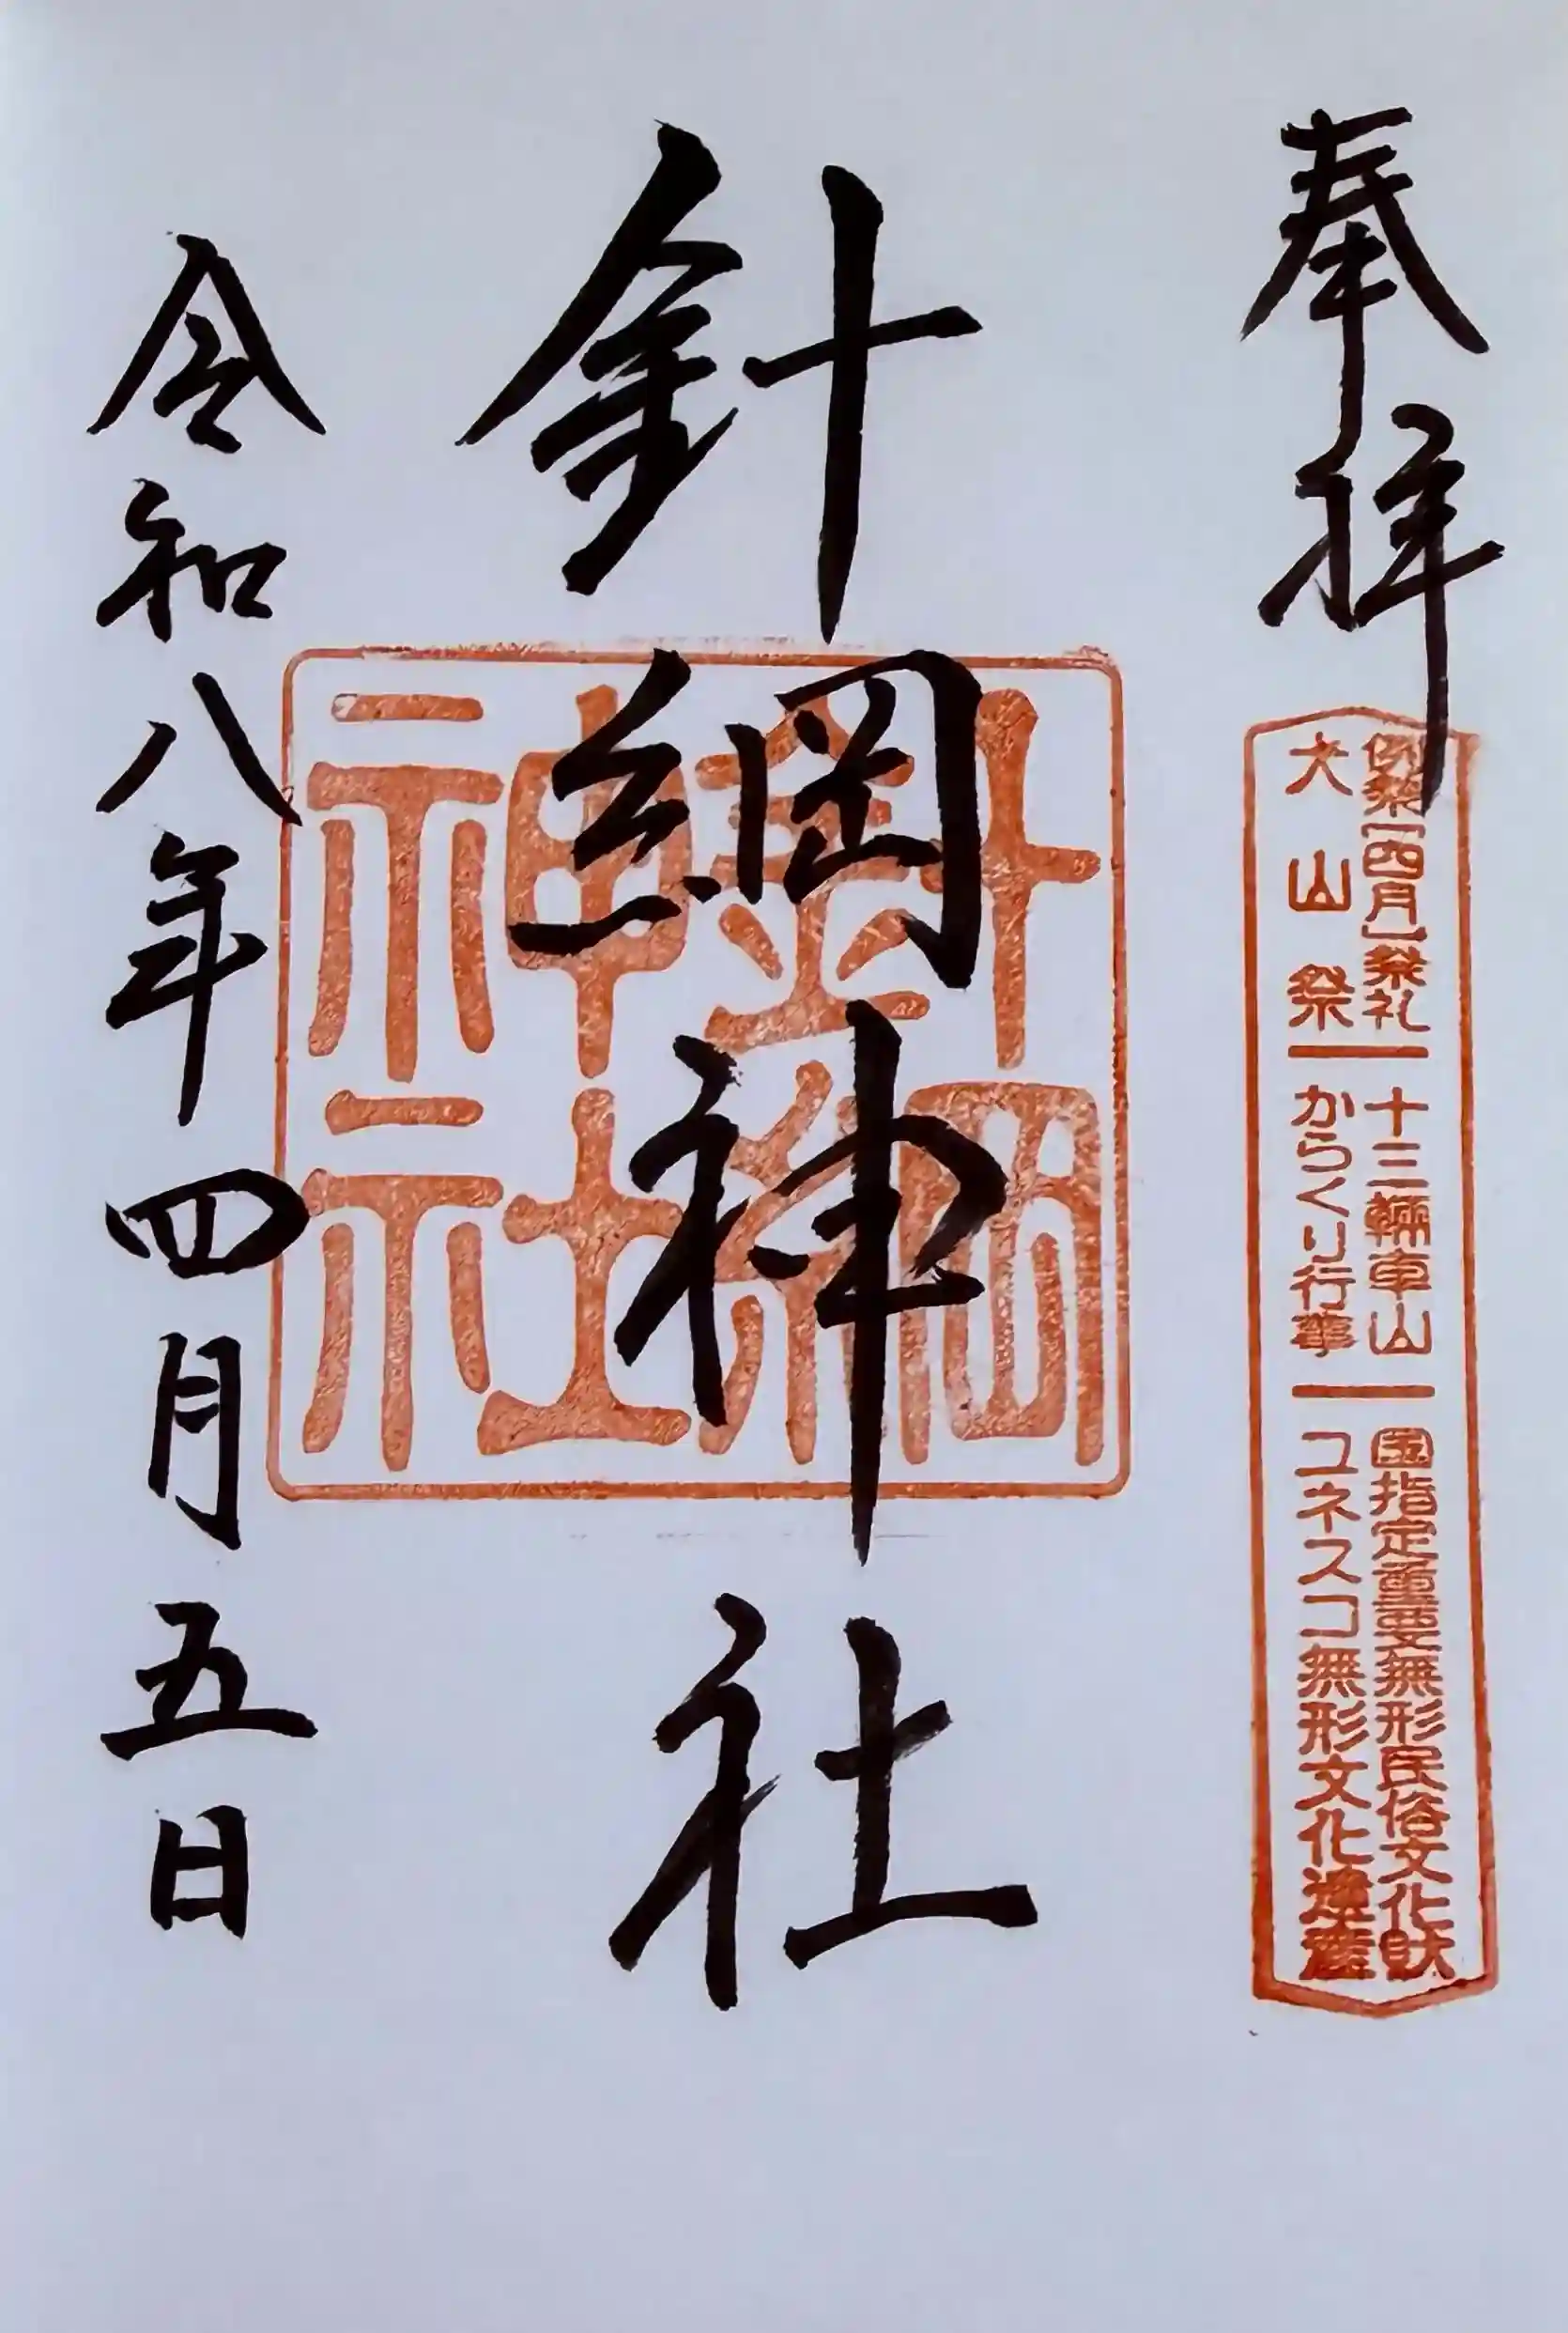 奉拝
例祭(四月)祭礼 十三輛車山 国指定重要無形民俗文化財
犬山祭 からくり行事 ユネスコ無形文化遺産
針綱神社
針綱
神社
令和八年四月五日